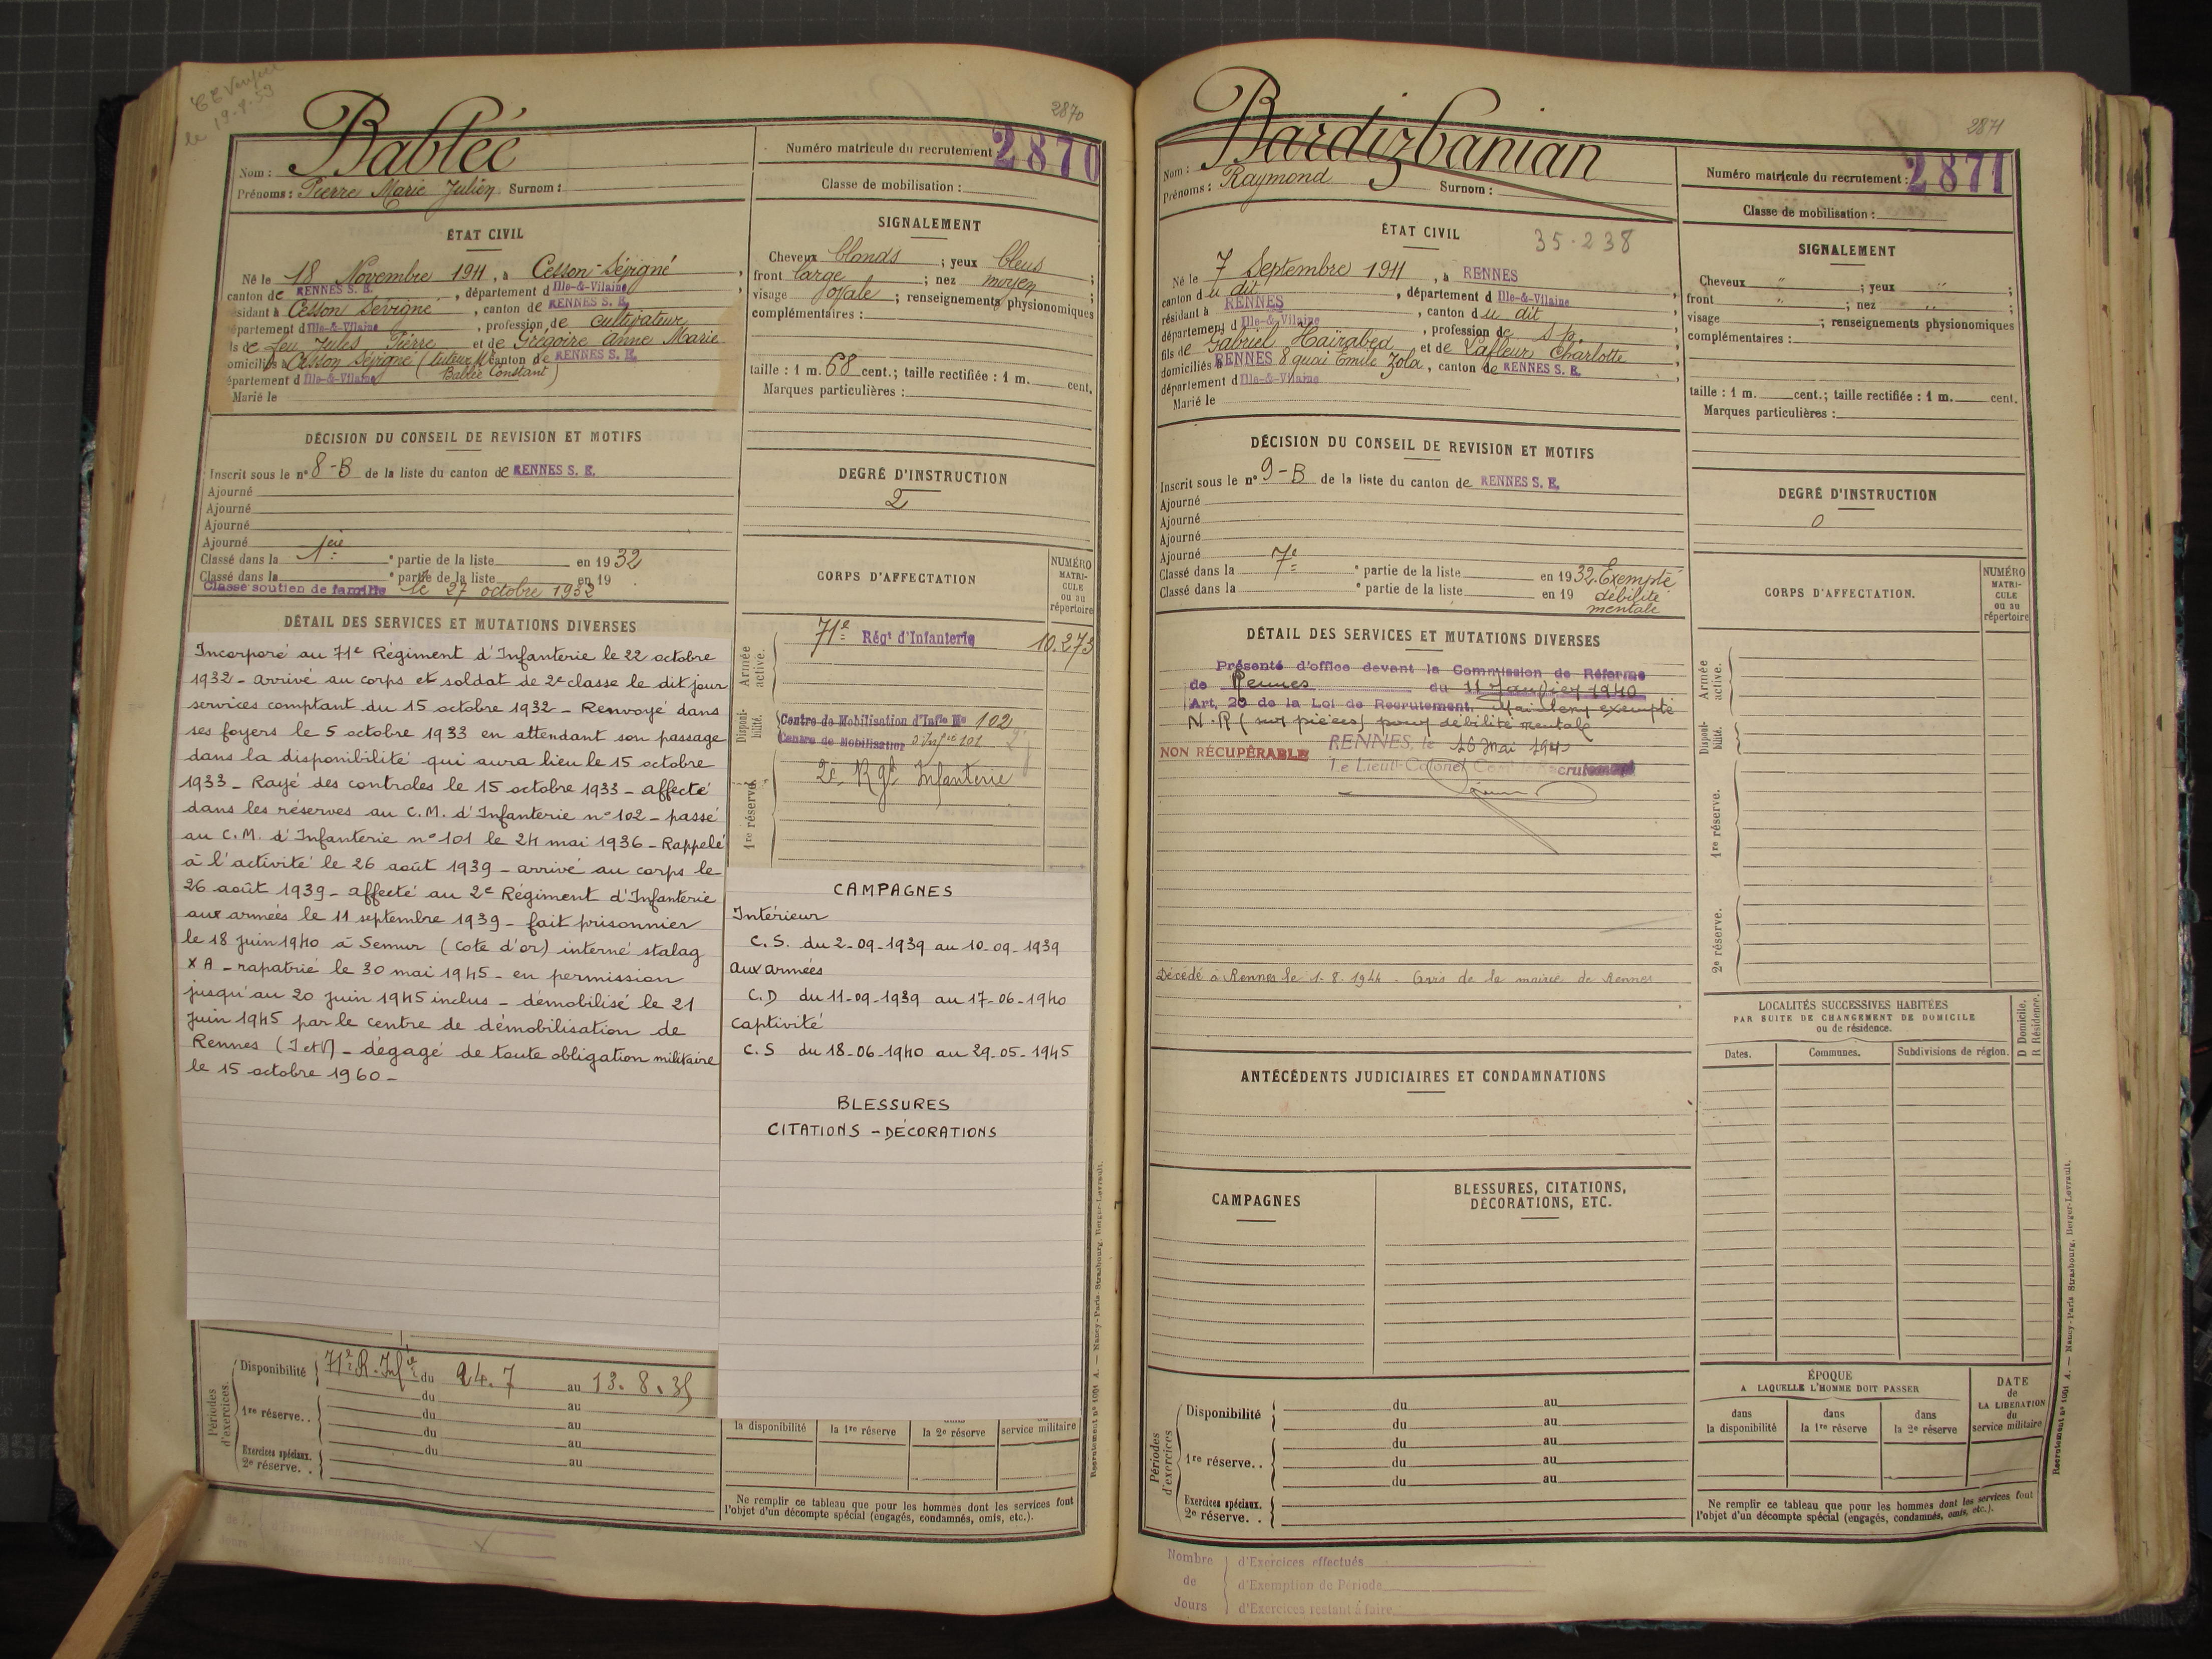 le 19-9-53
2870
Nom : Bablée
Prénoms : Pierre Marie Julien Surnom :
Numéro matricule du recrutement : 2870
Classe de mobilisation :
ÉTAT CIVIL
Né le 18 Novembre 1911, à Cesson-Sévigné,
canton de RENNES S. E., département d Ille-&-Vilaine,
résidant à Cesson Sévigné, canton de RENNES S. E.
département d Ille-&-Vilaine, profession de cultivateur
fils de feu Jules Pierre et de Grégoire Anne Marie
domiciliés à Cesson Sévigné (tuteur M canton de RENNES S. E.
département d Ille-&-Vilaine Bablée Constant)
Marié le
SIGNALEMENT
Cheveux blonds ; yeux bleus ;
front large ; nez moyen ;
visage ovale ; renseignements physionomiques
complémentaires :
taille : 1 m. 68 cent.; taille rectifiée : 1 m. cent.
Marques particulières :
DÉCISION DU CONSEIL DE REVISION ET MOTIFS
Inscrit sous le n° 8-B de la liste du canton de RENNES S. E.
Ajourné
Ajourné
Ajourné
Ajourné
Classé dans la 1ère ° partie de la liste en 1932
Classé dans la ° partie de la liste en 19
Classé soutien de famille le 27 octobre 1932
DEGRÉ D'INSTRUCTION
2
CORPS D'AFFECTATION
NUMÉRO
MATRI-
CULE
ou au
répertoire
Armée active.
71e Régt d'Infanterie 10.273
Disponibilité.
Centre de Mobilisation d'Infie No 102
Centre de Mobilisation d'Infie 101
1re réserve.
2e Rgt Infanterie
DÉTAIL DES SERVICES ET MUTATIONS DIVERSES
Incorporé au 71e Régiment d'Infanterie le 22 octobre
1932 - arrivé au corps et soldat de 2e classe le dit jour
services comptant du 15 octobre 1932 - Renvoyé dans
ses foyers le 5 octobre 1933 en attendant son passage
dans la disponibilité qui aura lieu le 15 octobre
1933 - Rayé des controles le 15 octobre 1933 - affecté
dans les réserves au C.M. d'Infanterie n° 102 - passé
au C.M. d'Infanterie n° 101 le 24 mai 1936 - Rappelé
à l'activité le 26 août 1939 - arrivé au corps le
26 août 1939 - affecté au 2e Régiment d'Infanterie
aux armées le 11 septembre 1939 - fait prisonnier
le 18 juin 1940 à Semur (cote d'or) interné stalag
X A - rapatrié le 30 mai 1945 - en permission
jusqu'au 20 juin 1945 inclus - démobilisé le 21
juin 1945 par le centre de démobilisation de
Rennes (I et V) - dégagé de toute obligation militaire
le 15 octobre 1960 -
CAMPAGNES
Intérieur
C.S. du 2-09-1939 au 10-09-1939
aux armées
C.D du 11-09-1939 au 17-06-1940
captivité
C.S du 18-06-1940 au 29-05-1945
BLESSURES
CITATIONS - DÉCORATIONS
Périodes d'exercices.
Disponibilité 71e R. Infie du 24.7 au 13.8.35
du au
1re réserve.. du au
du au
du au
Exercices spéciaux.
2e réserve. .
la disponibilité
la 1re réserve
la 2e réserve
service militaire
Ne remplir ce tableau que pour les hommes dont les services font
l'objet d'un décompte spécial (engagés, condamnés, omis, etc.).
Recrutement n° 1001 A. — Nancy-Paris-Strasbourg, Berger-Levrault.
2871
Nom : Bardizbanian
Prénoms : Raymond Surnom :
Numéro matricule du recrutement : 2871
Classe de mobilisation :
ÉTAT CIVIL 35.238
Né le 7 Septembre 1911, à RENNES
canton du dit, département d Ille-&-Vilaine,
résidant à RENNES, canton du dit
département d Ille-&-Vilaine, profession de s.p.
fils de Gabriel Haïrabed et de Lafleur Charlotte
domiciliés à RENNES 8 quai Emile Zola, canton de RENNES S. E.
département d Ille-&-Vilaine
Marié le
SIGNALEMENT
Cheveux " ; yeux " ;
front " ; nez " ;
visage ; renseignements physionomiques
complémentaires :
taille : 1 m. cent.; taille rectifiée : 1 m. cent.
Marques particulières :
DÉCISION DU CONSEIL DE REVISION ET MOTIFS
Inscrit sous le n° 9-B de la liste du canton de RENNES S. E.
Ajourné
Ajourné
Ajourné
Ajourné
Classé dans la 7e ° partie de la liste en 1932. Exempté
Classé dans la ° partie de la liste en 19 débilité
mentale
DEGRÉ D'INSTRUCTION
0
CORPS D'AFFECTATION.
NUMÉRO
MATRI-
CULE
ou au
répertoire
Armée active.
Disponibilité.
1re réserve.
2e réserve.
DÉTAIL DES SERVICES ET MUTATIONS DIVERSES
Présenté d'office devant la Commission de Réforme
de Rennes du 11 Janvier 1940
Art. 20 de la Loi de Recrutement. Maintenu exempté
N.R (sur pièces) pour débilité mentale
NON RÉCUPÉRABLE RENNES, le 16 Mai 194
Le Lieut-Colonel Recrutement
Décédé à Rennes le 1-8-1944 - Avis de la mairie de Rennes
ANTÉCÉDENTS JUDICIAIRES ET CONDAMNATIONS
LOCALITÉS SUCCESSIVES HABITÉES
PAR SUITE DE CHANGEMENT DE DOMICILE
ou de résidence.
D Domicile.
R Résidence.
Dates.
Communes.
Subdivisions de région.
CAMPAGNES
BLESSURES, CITATIONS,
DÉCORATIONS, ETC.
Périodes d'exercices
Disponibilité du au
du au
1re réserve.. du au
du au
du au
Exercices spéciaux.
2e réserve. .
ÉPOQUE
A LAQUELLE L'HOMME DOIT PASSER
dans
la disponibilité
dans
la 1re réserve
dans
la 2e réserve
DATE
de
LA LIBÉRATION
du
service militaire
Ne remplir ce tableau que pour les hommes dont les services font
l'objet d'un décompte spécial (engagés, condamnés, omis, etc.).
Recrutement n° 1001 A. — Nancy-Paris Strasbourg, Berger-Levrault.
Nombre
de
Jours
d'Exercices effectués
d'Exemption de Période
d'Exercices restant à faire